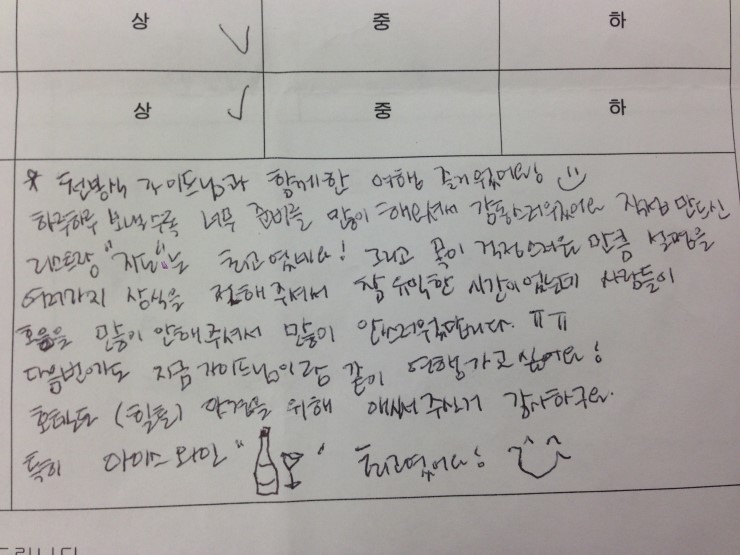 상 중 하
상 중 하
* 천방식 가이드님과 함께한 여행 즐거웠어요!
하루하루 보낼수록 너무 준비를 많이 해오셔서 감동스러웠어요 직접 만드신
리스트랑 "지도"는 최고였네요! 그리고 목이 걱정스러운 만큼 설명을
여러가지 상식을 전해주셔서 참 유익한 시간이었는데 사람들이
호응을 많이 안해주셔서 많이 안쓰러웠답니다. ㅠㅠ
다음번에도 지금 가이드님이랑 같이 여행가고 싶어요!
호텔도 (힐튼) 위해 애써주신거 감사하구요.
특히 아이스와인 " " 최고였어요!
드립니다